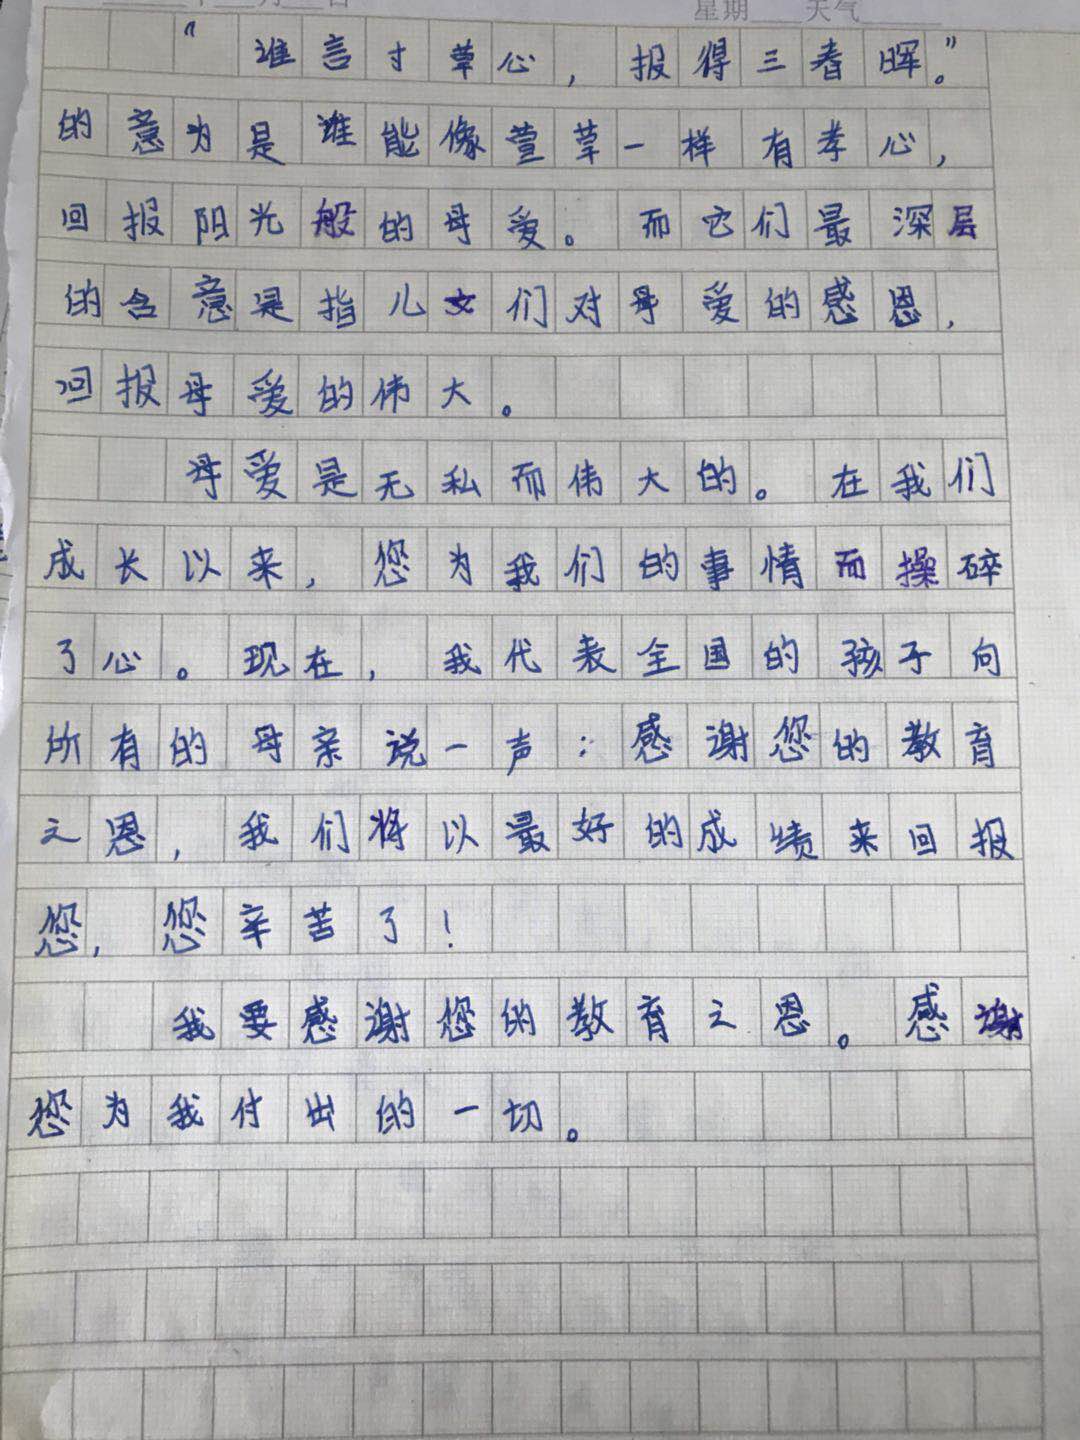 星期 天气
“谁言寸草心，报得三春晖。”
的意为是谁能像萱草一样有孝心，
回报阳光般的母爱。而它们最深层
的含意是指儿女们对母爱的感恩，
回报母爱的伟大。
母爱是无私而伟大的。在我们
成长以来，您为我们的事情而操碎
了心。现在，我代表全国的孩子向
所有的母亲说一声：感谢您的教育
之恩，我们将以最好的成绩来回报
您，您辛苦了！
我要感谢您的教育之恩。感谢
您为我付出的一切。